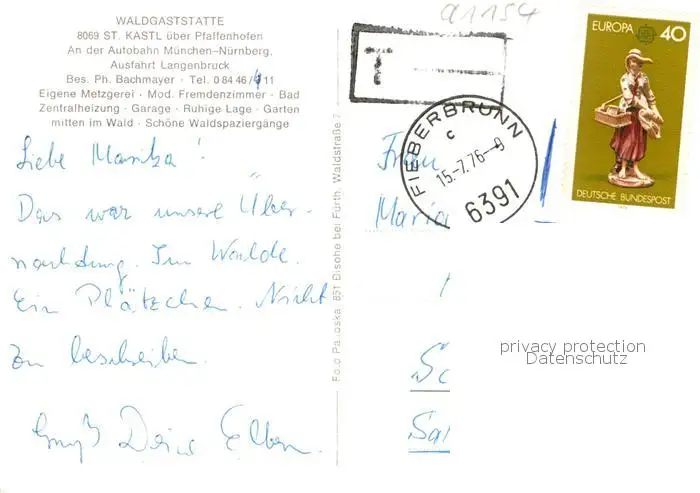 WALDGASTSTATTE
8069 ST. KASTL über Pfaffenhofen
An der Autobahn München-Nürnberg,
Ausfahrt Langenbruck
Bes. Ph. Bachmayer · Tel. 0 84 46/411
Eigene Metzgerei · Mod. Fremdenzimmer · Bad
Zentralheizung · Garage · Ruhige Lage · Garten
mitten im Wald · Schöne Waldspaziergänge
Liebe Maritza!
Das war unsere Über-
nachtung. Im Walde.
Ein Plätzchen. Nicht
zu beschreiben.
Gruß Deine Eltern.
Foto 851 bei Fürth, Waldstraße 7
a1154
T
FIEBERBRUNN
c
15-7.76-9
6391
EUROPA 40
DEUTSCHE BUNDESPOST
Frau
Maria
privacy protection
Datenschutz